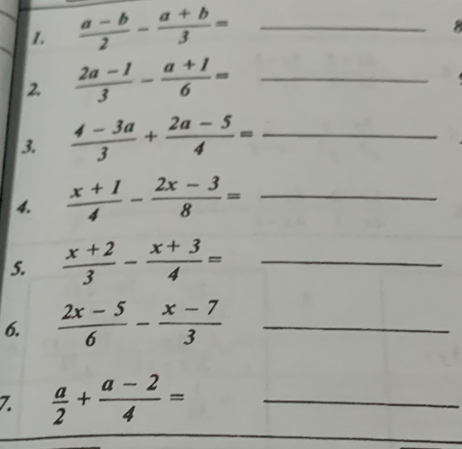 1. \frac{a - b}{2} - \frac{a + b}{3} =
2. \frac{2a - 1}{3} - \frac{a + 1}{6} =
3. \frac{4 - 3a}{3} + \frac{2a - 5}{4} =
4. \frac{x + 1}{4} - \frac{2x - 3}{8} =
5. \frac{x + 2}{3} - \frac{x + 3}{4} =
6. \frac{2x - 5}{6} - \frac{x - 7}{3}
7. \frac{a}{2} + \frac{a - 2}{4} =